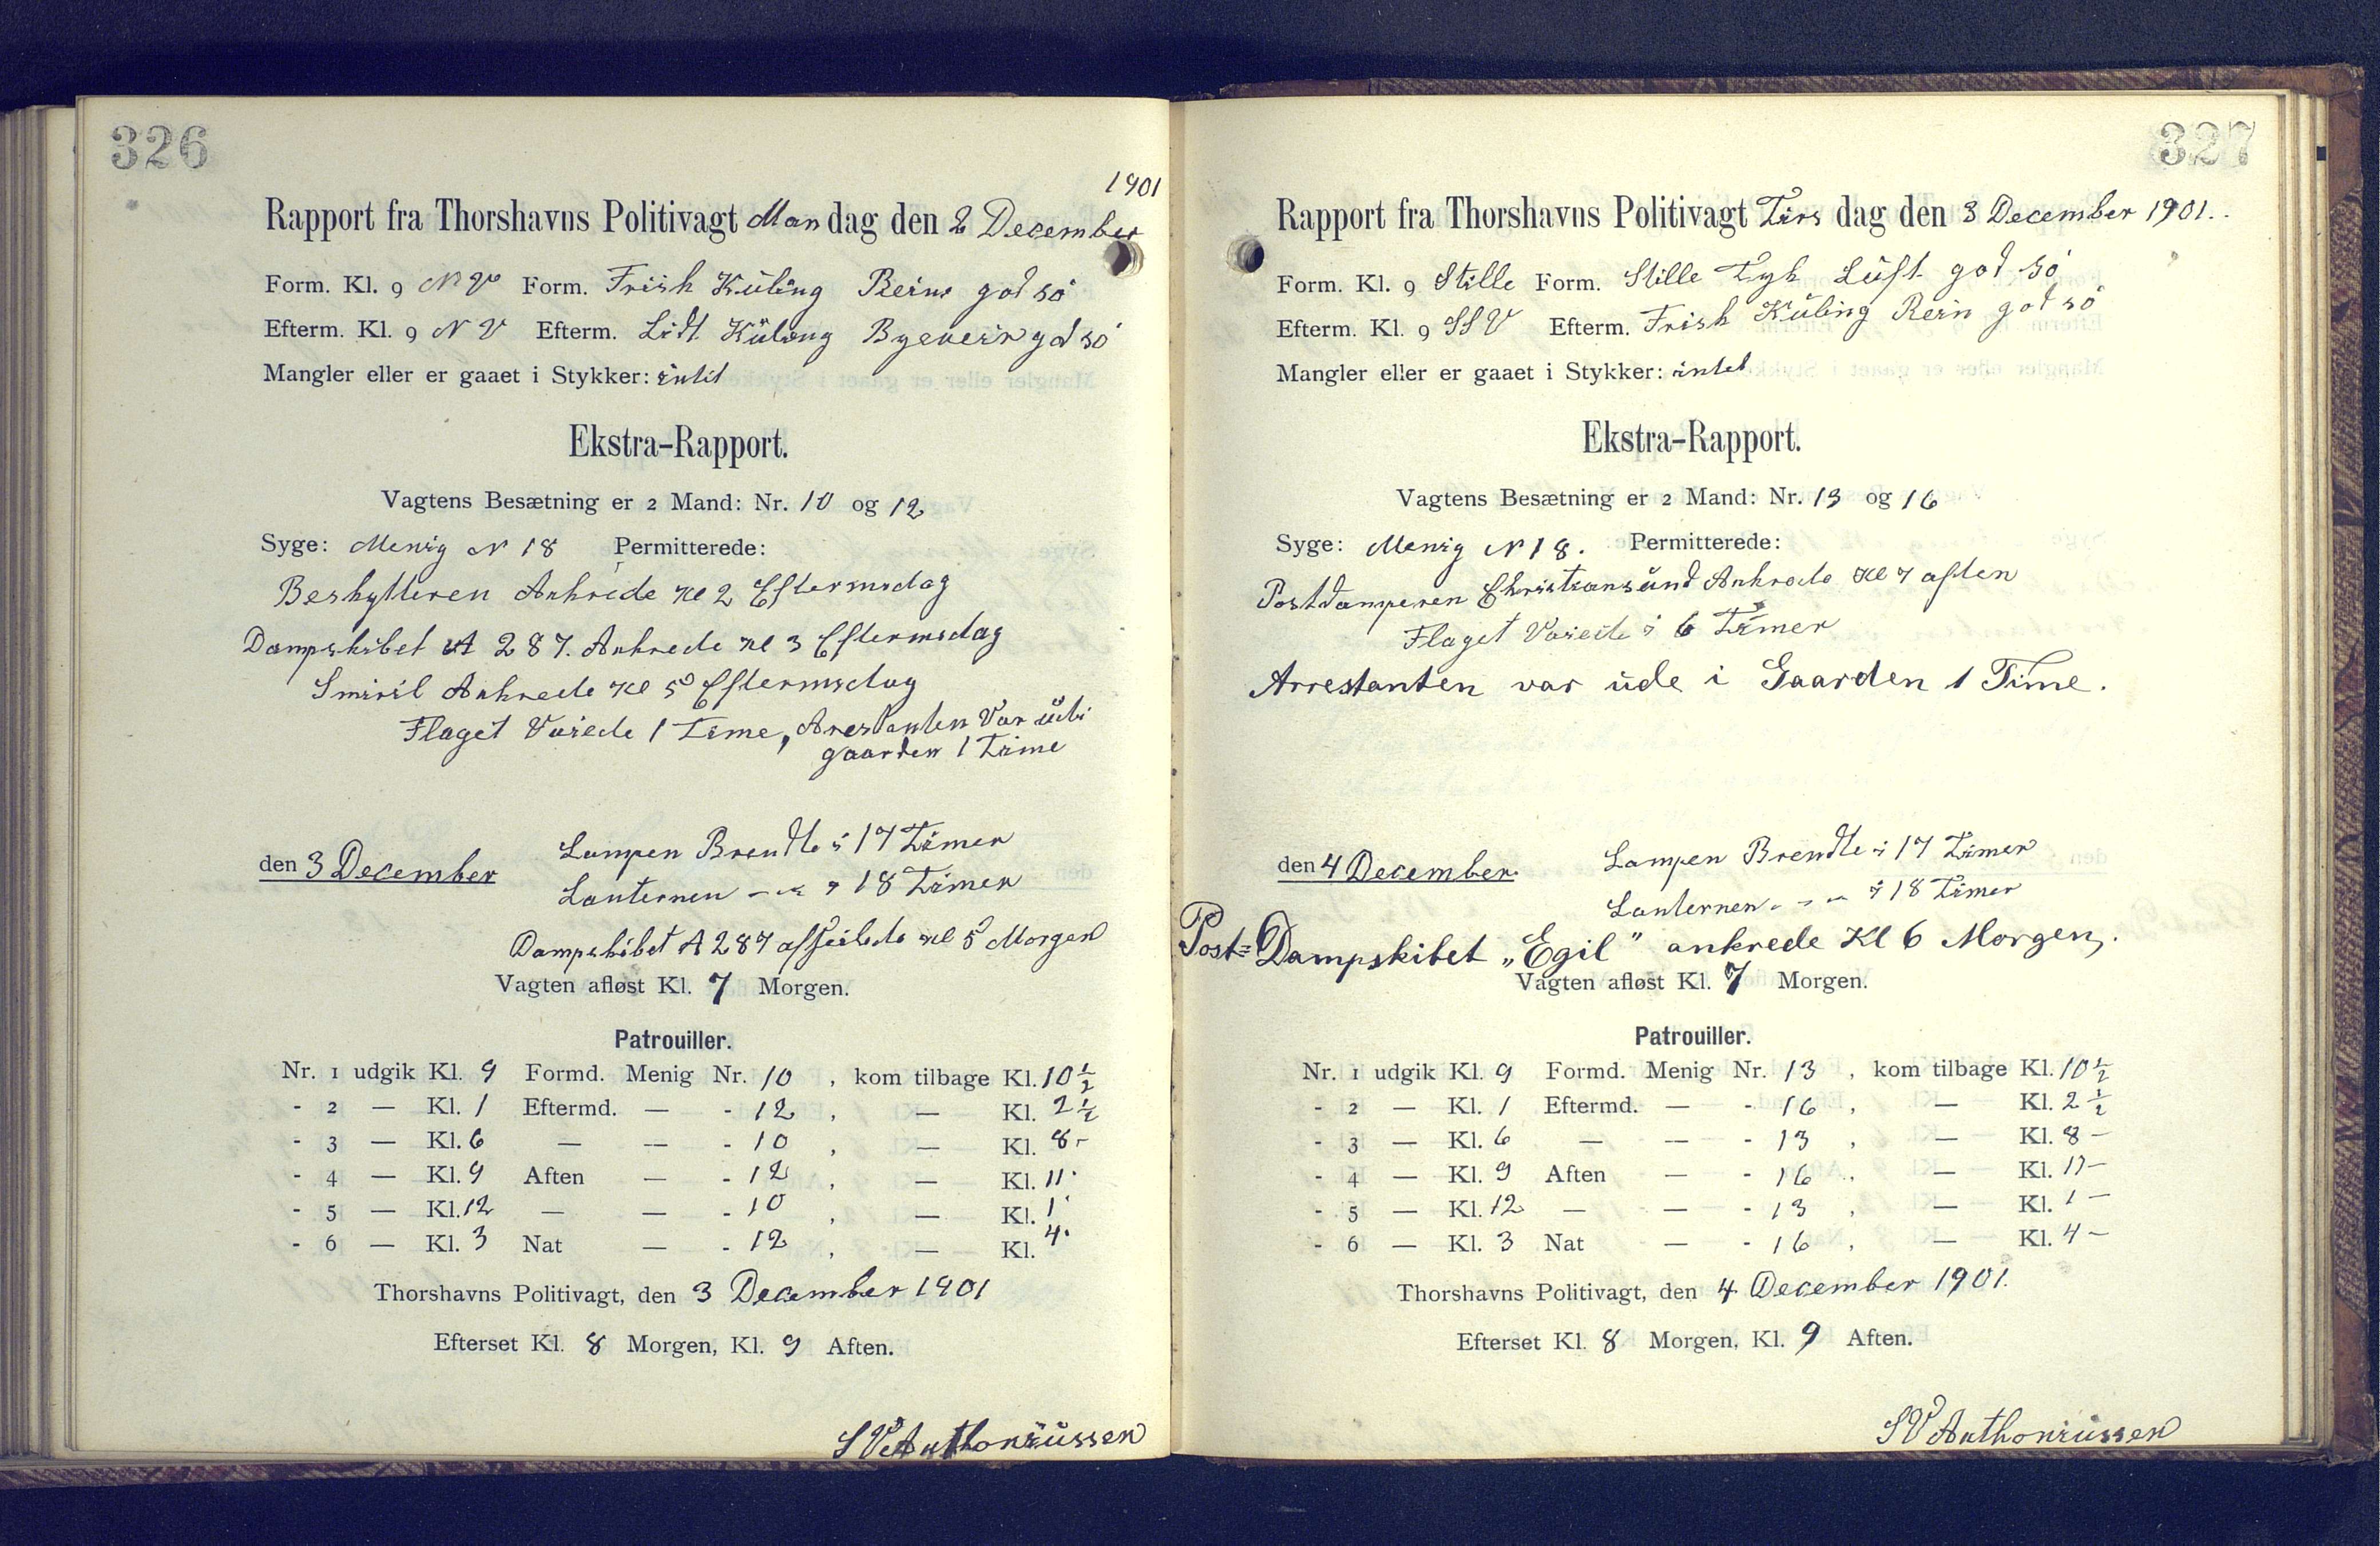 326
1901
Rapport fra Thorshavns Politivagt Man dag den 2 December
Form. Kl. 9 NV Form. Frish Küling Rein god sö
Efterm. Kl. 9 NV Efterm. Lidt Küling Bgeveir god sö
Mangler eller er gaaet i Stykker: intet
Ekstra-Rapport.
Vagtens Besætning er 2 Mand: Nr. 10 og 12
Syge: Menig N 18 Permitterede:
Beskytteren Ankrede Kl 2 Eftermidag
Dampskibet A 287. Ankrede Kl 3 Eftermidag
Smiril Ankrede Kl 5 Eftermidag
Flaget Vaiede 1 Time, Arestanten Var üdi
gaarden 1 Time
den 3 December
Lampen Brendte i 17 Timer
Lanternen - " i 18 Timer
Dampskibet A 287 afseilede Kl 5 Morgen
Vagten afløst Kl. 7 Morgen.
Patrouiller.
Nr. 1 udgik Kl. 9 Formd. Menig Nr. 10, kom tilbage Kl. 10 1/2
- 2 — Kl. 1 Eftermd. — - 12, — Kl. 2 1/2
- 3 — Kl. 6 — — - 10, — Kl. 8 -
- 4 — Kl. 9 Aften — - 12, — Kl. 11 ·
- 5 — Kl. 12 — — - 10, — Kl. 1 ·
- 6 — Kl. 3 Nat — - 12, — Kl. 4 ·
Thorshavns Politivagt, den 3 December 1901
Efterset Kl. 8 Morgen, Kl. 9 Aften.
SVAnthoniüssen
327
Rapport fra Thorshavns Politivagt Tirs dag den 3 December 1901.
Form. Kl. 9 Stille Form. Stille Tyk Lüft god sö
Efterm. Kl. 9 SSV Efterm. Frish Küling Rein god sö
Mangler eller er gaaet i Stykker: intet
Ekstra-Rapport.
Vagtens Besætning er 2 Mand: Nr. 13 og 16
Syge: Menig N 18. Permitterede:
Postdamperen Christiansünd Ankrede Kl 7 aften
Flaget Vaiede i 6 Timer
Arrestanten var üde i Gaarden 1 Time.
den 4 December.
Lampen Brendte i 17 Timer
Lanternen - - " i 18 Timer
Post=Dampskibet „Egil" ankrede Kl 6 Morgen.
Vagten afløst Kl. 7 Morgen.
Patrouiller.
Nr. 1 udgik Kl. 9 Formd. Menig Nr. 13, kom tilbage Kl. 10 1/2
- 2 — Kl. 1 Eftermd. — - 16, — Kl. 2 1/2
- 3 — Kl. 6 — — - 13, — Kl. 8 -
- 4 — Kl. 9 Aften — - 16, — Kl. 11 -
- 5 — Kl. 12 — — - 13, — Kl. 1 -
- 6 — Kl. 3 Nat — - 16, — Kl. 4 -
Thorshavns Politivagt, den 4 December 1901.
Efterset Kl. 8 Morgen, Kl. 9 Aften.
SVAnthoniüssen